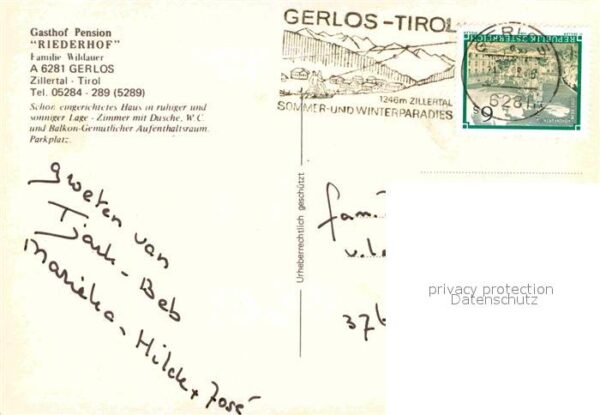 Gasthof Pension
"RIEDERHOF"
Familie Wildauer
A 6281 GERLOS
Zillertal - Tirol
Tel. 05284 - 289 (5289)
Schön eingerichtetes Haus in ruhiger und
sonniger Lage - Zimmer mit Dusche, W.C.
und Balkon-Gemütlicher Aufenthaltsraum.
Parkplatz.
GERLOS-TIROL
1246m ZILLERTAL
SOMMER-UND WINTERPARADIES
REPUBLIK ÖSTERREICH
S 9
6281
Urheberrechtlich geschützt
Groeten van
Tjark - Beb
Marieka - Hilde + José
fam.
v.
376
privacy protection
Datenschutz